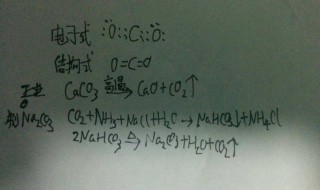 电子式 :Ö::C::Ö:
结构式 O=C=O
工业 CaCO₃ 高温→ CaO+CO₂↑
制Na₂CO₃ CO₂+NH₃+NaCl+H₂O→NaHCO₃↓+NH₄Cl
2NaHCO₃ △→ Na₂CO₃+H₂O+CO₂↑